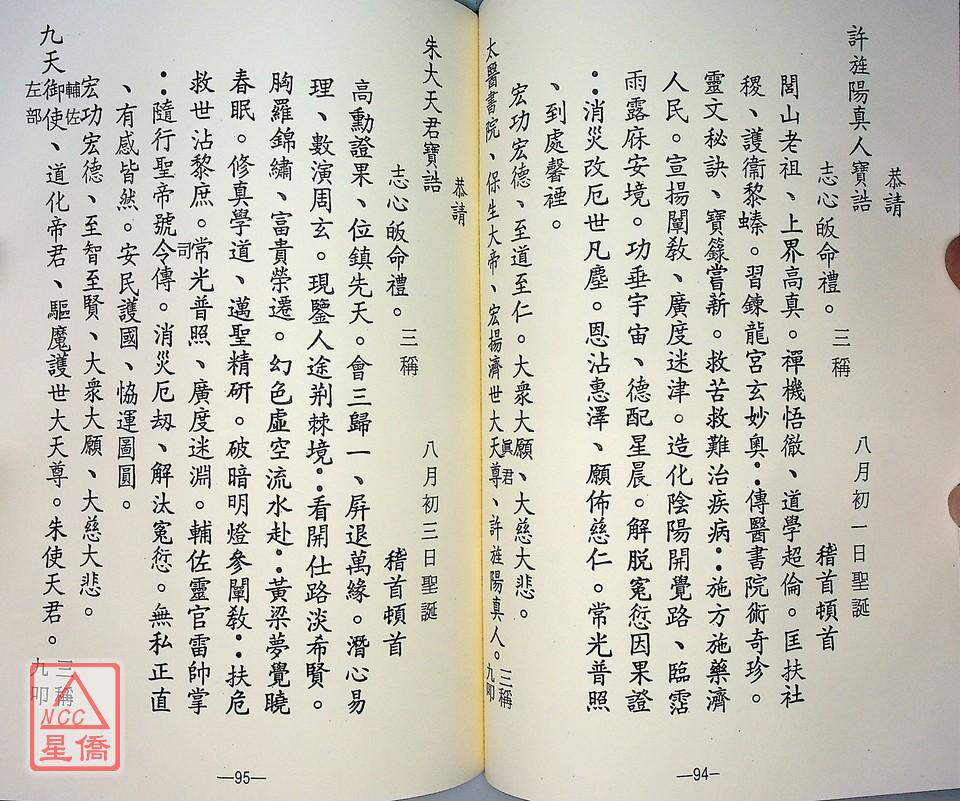 恭請
許旌陽真人寶誥 八月初一日聖誕
志心皈命禮。 三稱 稽首頓首
閭山老祖、上界高真。禪機悟徹、道學超倫。匡扶社
稷、護衛黎蓁。習鍊龍宮玄妙奧：傳醫書院術奇珍。
靈文秘訣、寶籙嘗新。救苦救難治疾病：施方施藥濟
人民。宣揚闡教、廣度迷津。造化陰陽開覺路、臨霑
雨露庥安境。功垂宇宙、德配星晨。解脫冤愆因果證
：消災改厄世凡塵。恩沾惠澤、願佈慈仁。常光普照
、到處馨禋。
宏功宏德、至道至仁。大衆大願、大慈大悲。
太醫書院、保生大帝、宏揚濟世大天尊、許旌陽真人。 三稱九叩
興君
—94—
恭請
朱大天君寶誥 八月初三日聖誕
志心皈命禮。 三稱 稽首頓首
高勳證果、位鎮先天。會三歸一、屏退萬緣。潛心易
理、數演周玄。現鑒人途荆棘境：看開仕路淡希賢。
胸羅錦繡、富貴榮遷。幻色虛空流水赴：黃梁夢覺曉
春眠。修真學道、邁聖精研。破暗明燈參闡教：扶危
救世沾黎庶。常光普照、廣度迷淵。輔佐靈官雷帥掌
司
：隨行聖帝號令傳。消災厄劫、解汰冤愆。無私正直
、有感皆然。安民護國、恊運圖圓。
宏功宏德、至智至賢、大衆大願、大慈大悲。
輔佐
左部
九天御使、道化帝君、驅魔護世大天尊。朱使天君。 三稱九叩
—95—
NCC
星僑